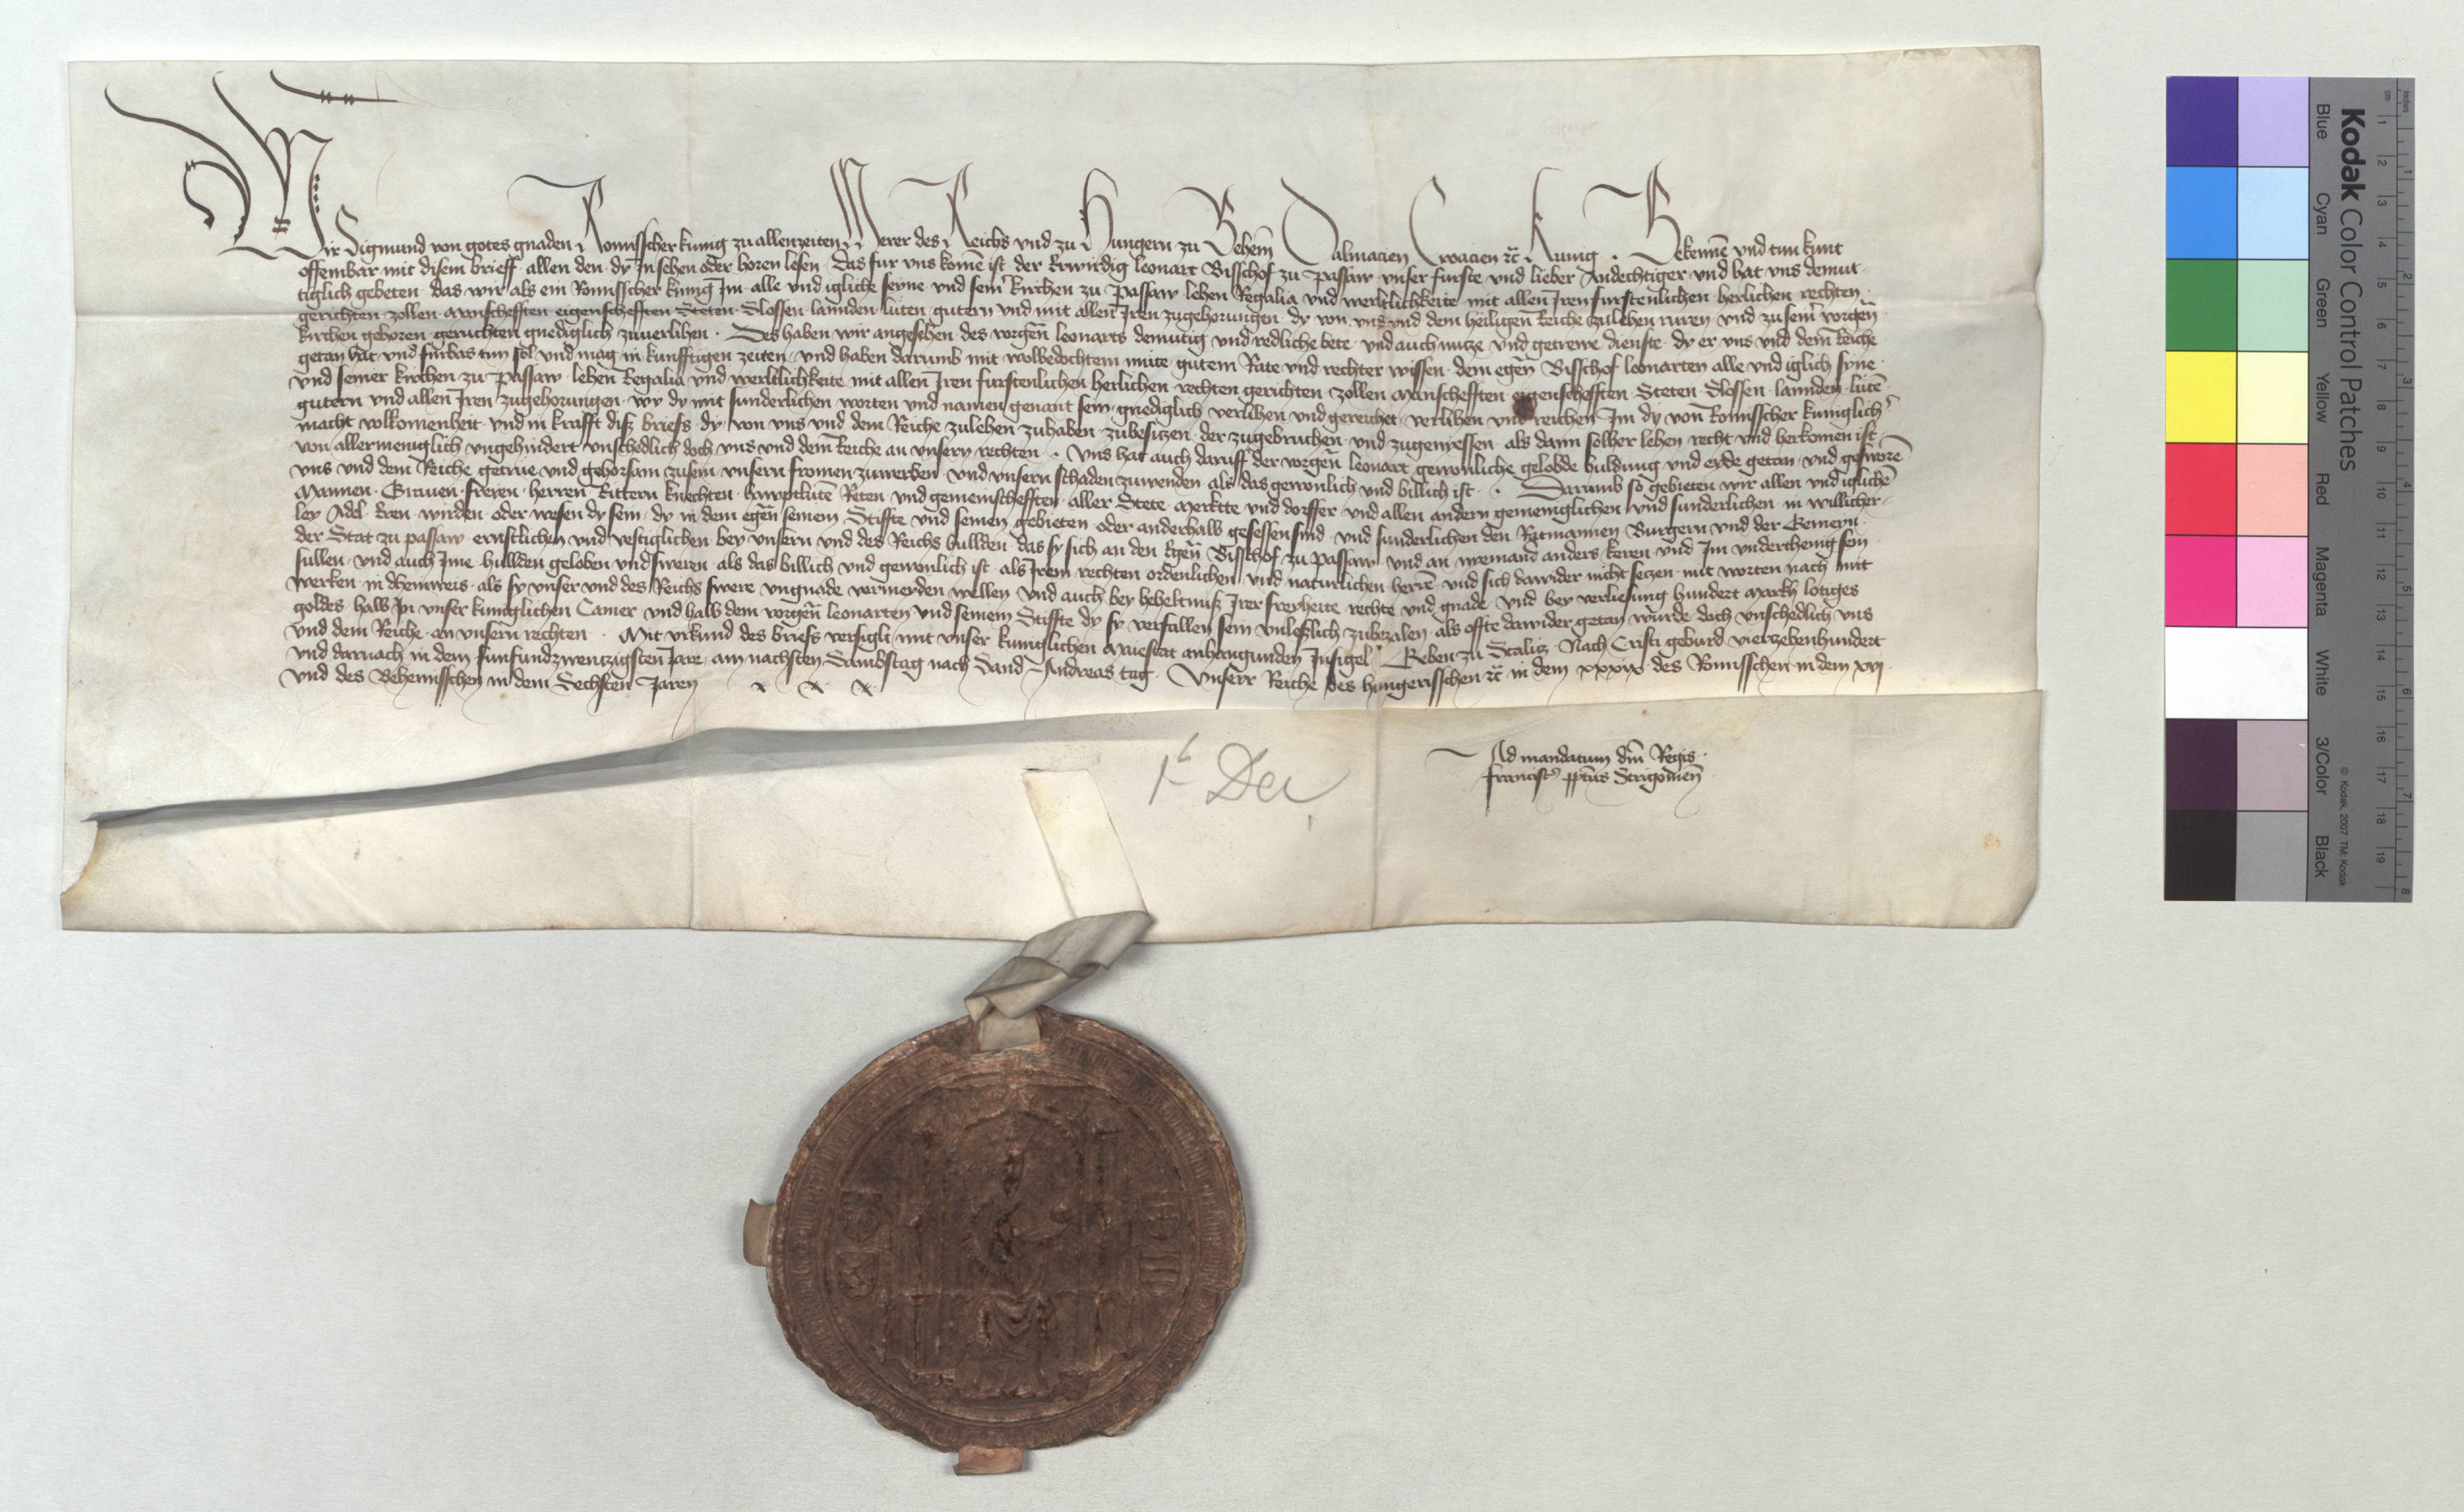 Wir Sigmund von gotes gnaden Romisscher kunig zu allenzeiten Merer des Reichs vnd zu Hungern zu Behem̄ Dalmacien Croacien ꝛc̄ Kunig · Bekenn̄e vnd tun kunt
offembar mit disem brieff allen den dy In sehen oder horen lesen · Das fur vns kom̄e ist der Erwirdig leonart Bisschof zu Passaw vnser furste vnd lieber Andechtiger vnd hat vns demut
tiglich gebeten das wir als ein Romisscher kunig Im alle vnd igliche seyne vnd sein̄ kirchen zu Passaw lehen Regalia vnd werltlichkeite mit allen Iren furstenlichen herlichen rechten
gerichten zollen Manschefften eigenschefften Steten Slossen lannden luten gutern vnd mit allen Iren zugehorungen dy von vns vnd dem heiligen Reiche zulehen ruren vnd zu sein̄ vorgen̄
kirchen gehoren geruchten gnediglich zuuerlihen · Des haben wir angesehen des vorgen̄ leonarts demutig vnd redliche bete vnd auch nutze vnd getrewe dienste dy er vns vnd dem Reiche
getan hat vnd furbas tun sol vnd mag in kunfftigen zeiten vnd haben darumb mit wolbedochtem mute gutem Rate vnd rechter wissen dem egen̄ Bisschof leonarten alle vnd iglich syne
vnd seiner kirchen zu Passaw lehen Regalia vnd werltlichkeite mit allen Iren furstenlichen herlichen rechten gerichten zollen Manschefften eigenschefften Steten Slossen lannden lutē
gutern vnd allen Iren zugehorungen wy dy mit sunderlichen worten vnd namen genant sein gnediglich verlihen vnd gereichet verlihen vnd reichen Im dy von Romisscher kuniglich
macht volkomenheit vnd in krafft disz briefs dy von vns vnd dem Reiche zulehen zuhaben zubesitzen der zugebruchen vnd zugenyessen als dann solher lehen recht vnd herkomen ist
von allermeniglich vngehindert vnschedlich doch vns vnd dem Reiche an vnsern rechten · Vns hat auch daruff der vorgen̄ leonart gewonliche gelobde huldung vnd eyde getan vnd gesworē
vns vnd dem Reiche getrue vnd gehorsam zusein vnsern fromen zuwerben vnd vnsern schaden zuwenden als das gewonlich vnd billich ist · Darumb so gebieten wir allen vnd iglichē
Mannen Grauen freyen herren Rittern knechten hawptlutē Reten vnd gemeinschefften aller Stete Merktte vnd dorffer vnd allen andern gemeiniglichen vnd sunderlichen in willicher
ley Adel Eren wirden oder wesen dy sein dy in dem egen̄ seinem Stiffte vnd seinen gebieten oder anderhalb gesessen sind vnd sunderlichen den Ratmannen Burgern vnd der Gemeyn
der Stat zu passaw ernstlichen vnd vestiglichen bey vnsern vnd des Reichs hullden das sy sich an den Egen̄ Bisschof zu Passaw vnd an nyemand anders keren vnd Im vndertheinig sein
sullen vnd auch Ime hullden geloben vnd sweren als das billich vnd gewonlich ist als Irem rechten ordenlichen vnd naturlichen herrē vnd sich dawider nicht setzen mit worten nach mit
werken in dheinweis als sy vnser vnd des Reichs swere vngnade vermeyden wellen vnd auch bey beheltniss Irer freyheite rechte vnd gnade vnd bey verliesung hundert Markh lotiges
goldes halb In vnser kuniglichen Camer vnd halb dem vorgen̄ leonarten vnd seinem Stiffte dy sy verfallen sein vnleslich zubezalen als offte dawider getan wurde doch vnschedlich vns
vnd dem Reiche an vnsern rechten · Mit vrkund des briefs versigelt mit vnser kuniglichen Maiestat anhangunden Insigel · Geben zu Scalitz Nach Cristi geburd vierzehenhundert
vnd darnach in dem funfundzwentzigsten Jare am nachsten Sambstag nach Sand Andreas tag · Vnserr Reiche des hungerisschen ꝛc̄ in dem xxxix des Romisschen in dem xvj
vnd des Behemisschen in dem Sechsten Jaren
1t Dec
Ad mandatum dn̄i Regis
Francisc' pp̄tus Strigonien̄
Kodak Color Control Patches
Blue Cyan Green Yellow Red Magenta White 3/Color Black
© Kodak, 2007 TM: Kodak
cm 1 2 3 4 5 6 7 8 9 10 11 12 13 14 15 16 17 18 19
inches 1 2 3 4 5 6 7 8